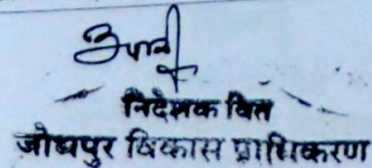 निदेशक वित्त
जोधपुर विकास प्राधिकरण